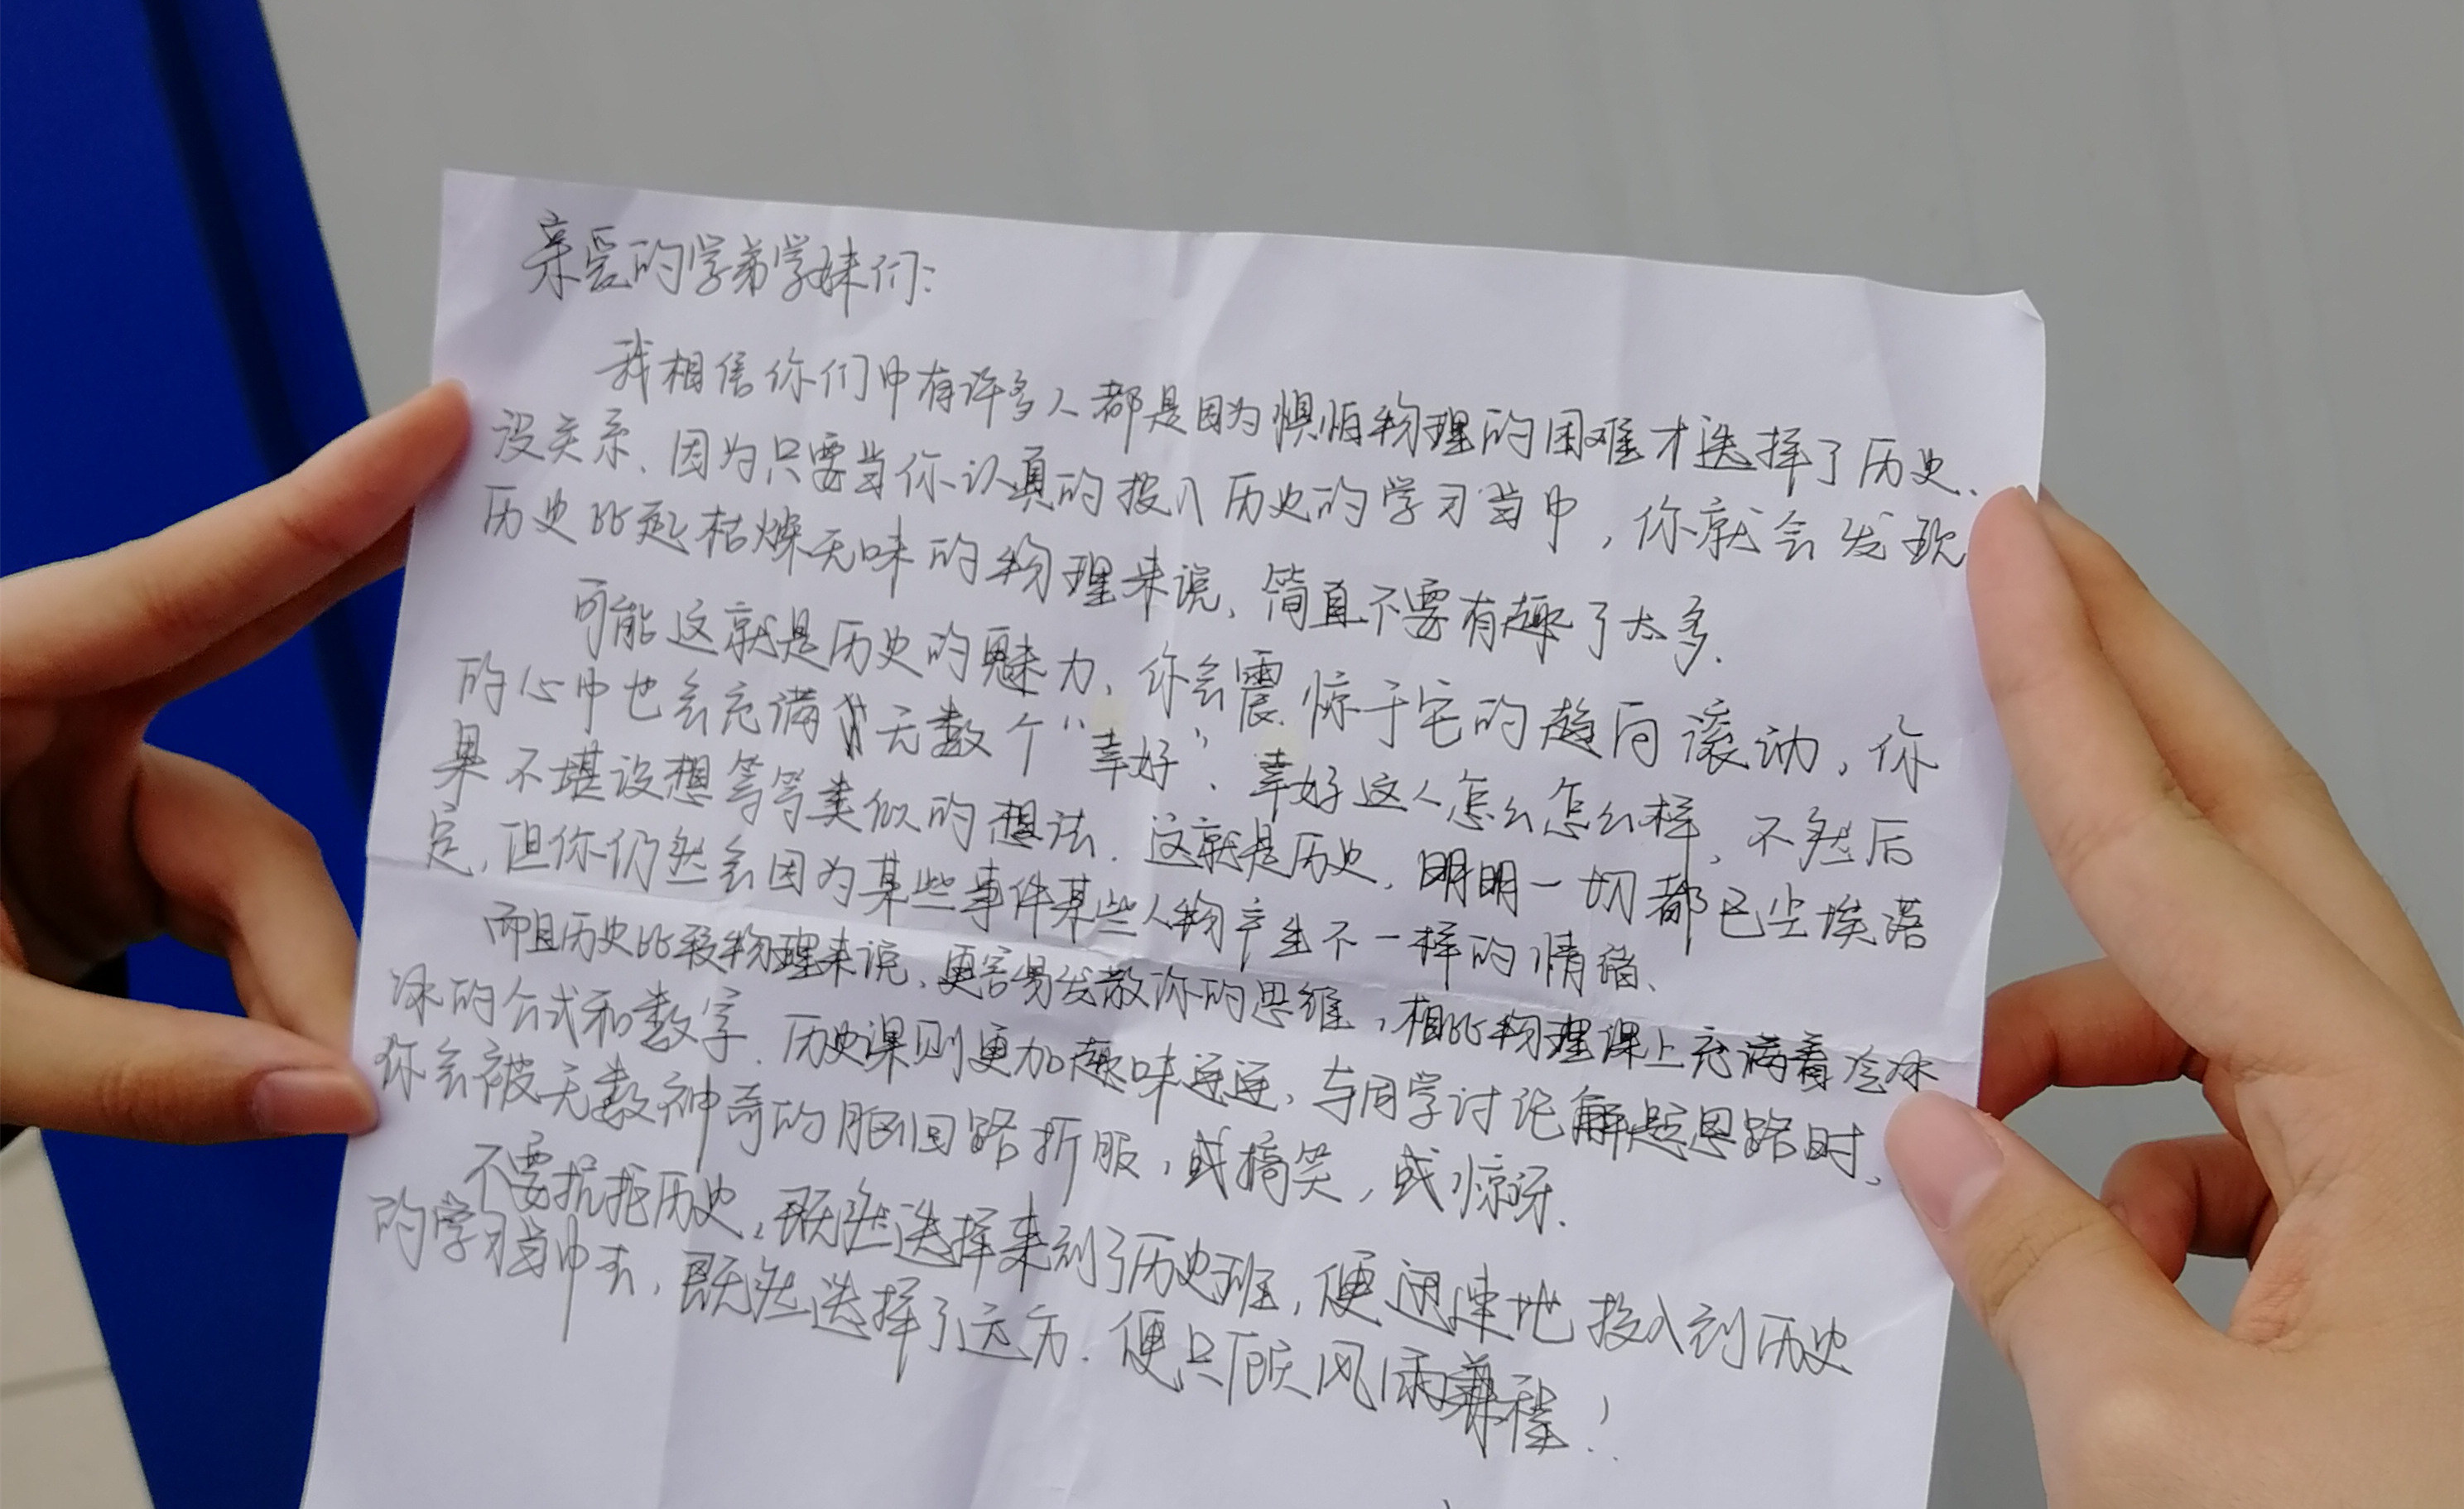 亲爱的学弟学妹们:
我相信你们中有许多人都是因为惧怕物理的困难才选择了历史、
没关系、因为只要当你认真的投入历史的学习当中,你就会发现
历史比起枯燥无味的物理来说、简直不要有趣了太多.
可能这就是历史的魅力、你会震惊于它的趋向滚动,你
的心中也会充满无数个“幸好”、幸好这人怎么怎么样,不然后
果不堪设想等等类似的想法.这就是历史,明明一切都已尘埃落
定,但你仍然会因为某些事件某些人物产生不一样的情绪、
而且历史比较物理来说、更容易发散你的思维,相比物理课上充满着冷冰
冰的公式和数字.历史课则更加趣味连连,与同学讨论解题思路时,
你会被无数神奇的脑回路折服,或搞笑,或惊讶.
不要抗拒历史,既然选择来到了历史班,便迅速地投入到历史
的学习当中去,既然选择了远方.便只顾风雨兼程!